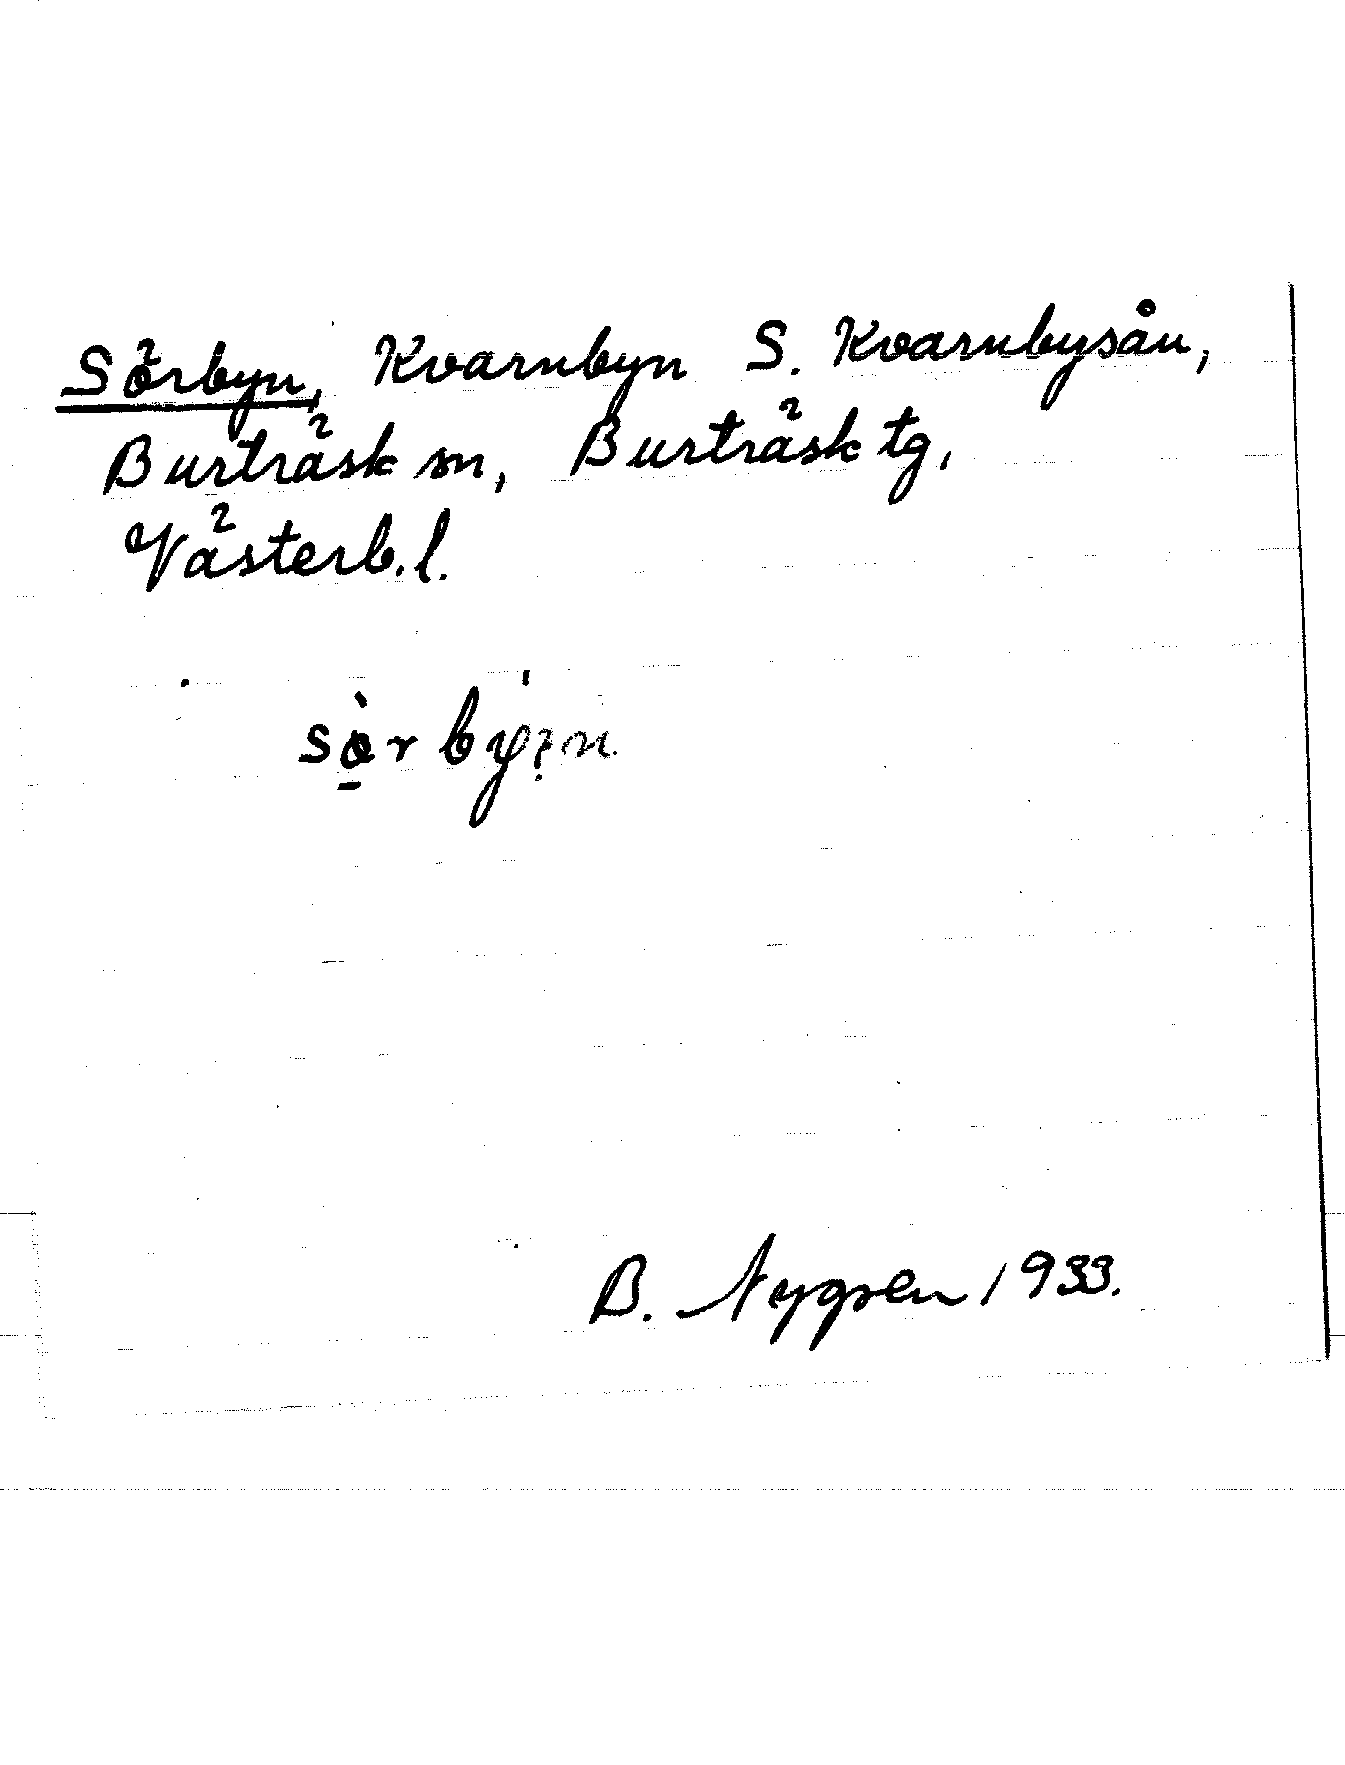 Sörbyn, Kvarnbyn S. Kvarnbysån,
Burträsk sn, Burträsk tg,
Västerb.l.
B. Nygren 1933.